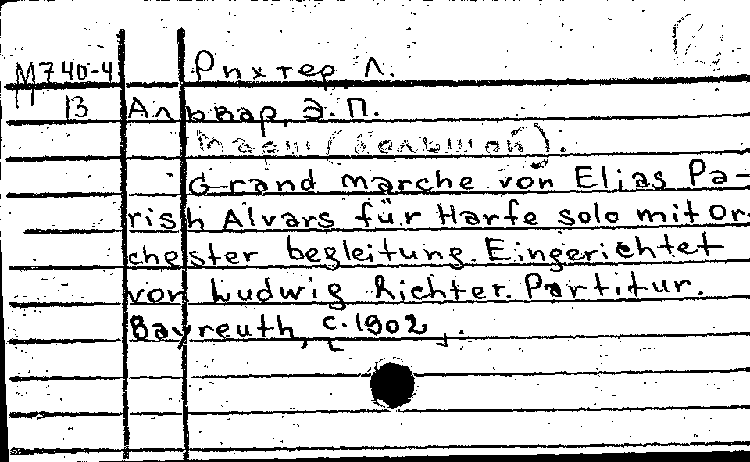 М740-4 Рихтер Л.
13 Альвар, Э.П.
Марш (большой).
Grand marche von Elias Pa-
rish Alvars für Harfe solo mit Or-
chester begleitung. Eingerichtet
von Ludwig Richter. Partitur.
Bayreuth, [c.1902].